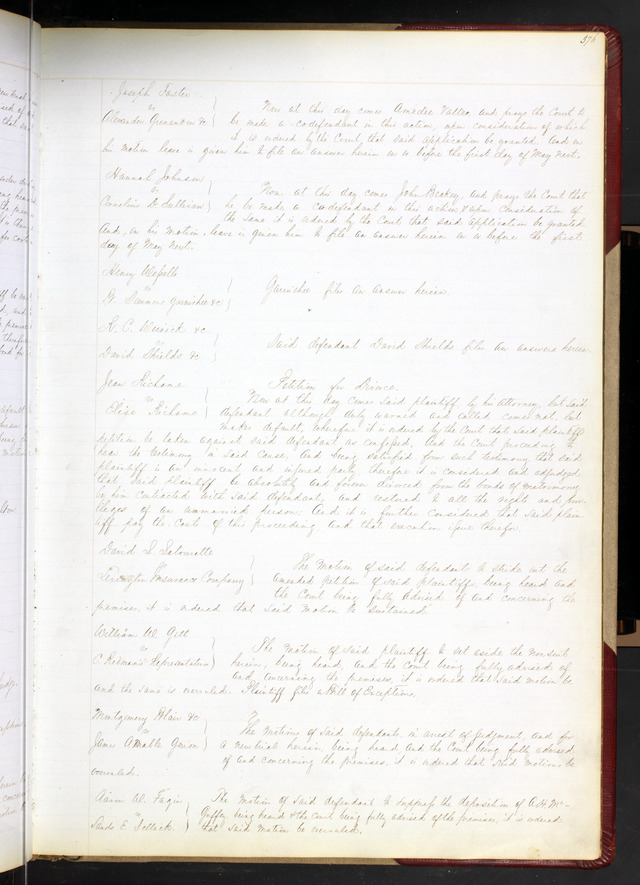 376
Joseph Foster
vs
Alexander &c
Now at this day comes Amadee Valle, and prays the Court to
be made a co-defendant in this action, upon consideration of which
it is ordered by the Court that said application be granted. And on
his motion leave is given him to file an answer herein on or before the first day of May next.
Hannah Johnson
vs
Caroline D. Sullivan
Now at this day comes John and prays the Court that
he be made a Co-defendant in this action & upon Consideration of
the same it is ordered by the Court that said application be granted
And, on his motion, leave is given him to file an answer herein on or before the first
day of May next.
Henry
vs
Garnishee &c
Garnishee files an answer herein
K. C. &c
vs
David Shields &c
Said defendant David Shields files an answer herein
Jean
vs
Elise
Petition for Divorce.
Now at this day comes said plaintiff by his Attorney, but said
defendant although duly warned and called comes not, but
makes default, wherefore it is ordered by the Court that said plaintiff's
petition be taken against said defendant as confessed, And the Court proceeding to
hear the testimony in said Cause, and being satisfied from such testimony that said
plaintiff is an innocent and injured party, therefore it is considered and adjudged
that said plaintiff be absolutely and forever divorced from the bonds of matrimony
by him contracted with said defendant, and restored to all the rights and privi-
leges of an unmarried person. And it is further considered that said plain-
tiff pay the costs of this proceeding, and that execution issue therefor.
David L.
vs
Lexington Insurance Company
The Motion of said defendant to strike out the
amended petition of said plaintiff, being heard and
the Court being fully advised of and concerning the
premises, it is ordered that said motion be sustained.
William W. Gill
vs
Representatives
The Motion of said plaintiff to set aside the nonsuit
herein, being heard, and the Court being fully advised of
and concerning the premises, it is ordered that said motion be
and the same is overruled. Plaintiff files a Bill of Exceptions.
Montgomery Blair &c
vs
James Amable
The motions of said defendants, in arrest of Judgment, and for
a new trial herein, being heard and the Court being fully advised
of and concerning the premises, it is ordered that said motions be
overruled.
Aaron W. Fagin
vs
E.
The Motion of said defendant to suppress the deposition of A H Mc-
Guffey being heard & the court being fully advised of the premises, it is ordered
that said motion be overruled.